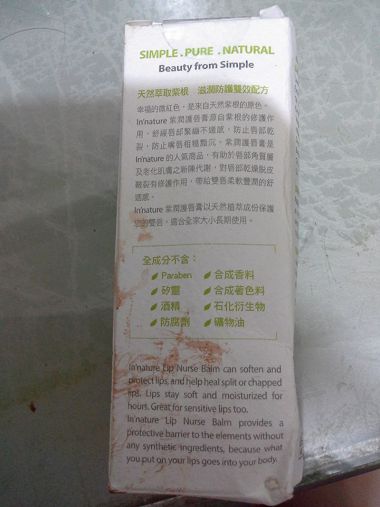 SIMPLE . PURE . NATURAL
Beauty from Simple
天然萃取紫根 滋潤防護雙效配方
幸福的微紅色，是來自天然紫根的原色。
In'nature 紫潤護唇膏原自紫根的修護作
用，舒緩唇部緊繃不適感，防止唇部乾
裂，防止嘴唇粗糙黯沉。紫潤護唇膏是
In'nature 的人氣商品，有助於唇部角質層
及老化肌膚之新陳代謝，對唇部乾燥脫皮
皸裂有修護作用，帶給雙唇柔軟豐潤的舒
適感。
In'nature 紫潤護唇膏以天然植萃成份保護
您的雙唇，適合全家大小長期使用。
全成分不含：
Paraben 合成香料
矽靈 合成著色料
酒精 石化衍生物
防腐劑 礦物油
In'nature Lip Nurse Balm can soften and
protect lips, and help heal split or chapped
lips. Lips stay soft and moisturized for
hours. Great for sensitive lips too.
In'nature Lip Nurse Balm provides a
protective barrier to the elements without
any synthetic ingredients, because what
you put on your lips goes into your body.